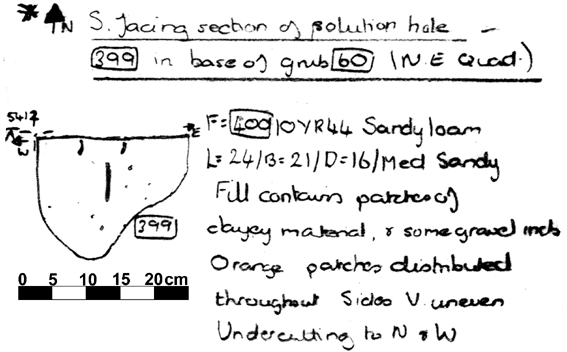 * N S. facing section of solution hole -
399 in base of grub 60 (N.E Quad.)
5417
W E
F= 400 10YR44 Sandy loam
L= 24/B=21/D=16/Med Sandy
Fill contains patches of
clayey material, & some gravel incls
Orange patches distributed
throughout Sides V. uneven
Undercutting to N & W
399
0 5 10 15 20cm